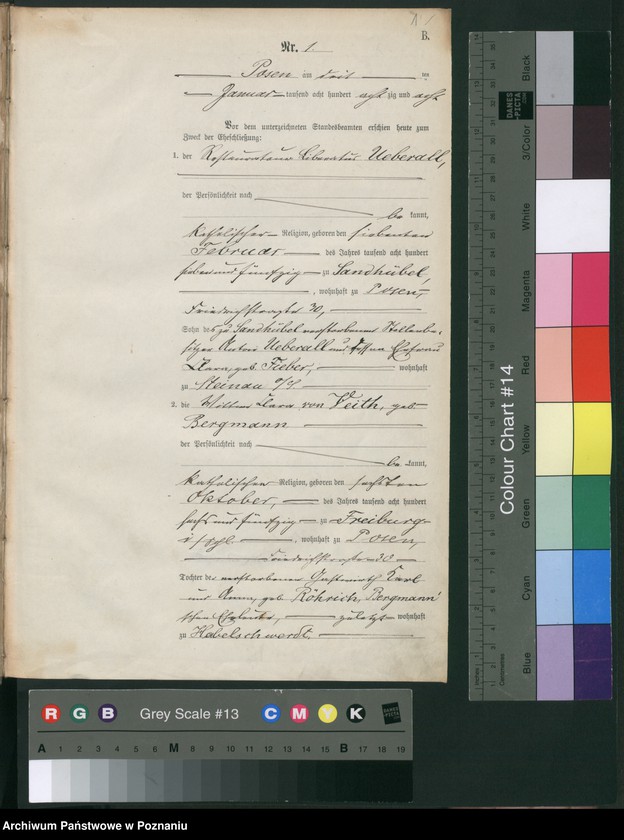 B.
Nr. 1.
Posen am drei ten
Januar tausend acht hundert acht zig und acht
Vor dem unterzeichneten Standesbeamten erschien heute zum
Zweck der Eheschließung:
1. der Restaurateur Liberatus Ueberall,
der Persönlichkeit nach
be kannt,
katholischer Religion, geboren den siebenten
Februar des Jahres tausend acht hundert
sieben und fünfzig zu Sandhübel,
, wohnhaft zu Posen,
Friedrichstraße 30,
Sohn des zu Sandhübel verstorbenen Stellenbe-
sitzers Anton Ueberall und dessen Ehefrau
Klara, geb. Fieber, wohnhaft
zu Steinau O/S
2. die Wittwe Klara von Veith, geb.
Bergmann
der Persönlichkeit nach
be kannt,
katholischer Religion, geboren den sechsten
Oktober, des Jahres tausend acht hundert
sechs und fünfzig zu Freiburg
i/Schl. , wohnhaft zu Posen,
Friedrichstraße 30
Tochter der verstorbenen Gastwirth Karl
und Anna, geb. Röhrich, Bergmann'
schen Eheleute, zuletzt wohnhaft
zu Habelschwerdt.
Colour Chart #14
Black
3/Color
White
Magenta
Red
Yellow
Green
Cyan
Blue
DANES
PICTA
.COM
Inches
Centimetres
R G B Grey Scale #13 C M Y K
A 1 2 3 4 5 6 M 8 9 10 11 12 13 14 15 B 17 18 19
Archiwum Państwowe w Poznaniu